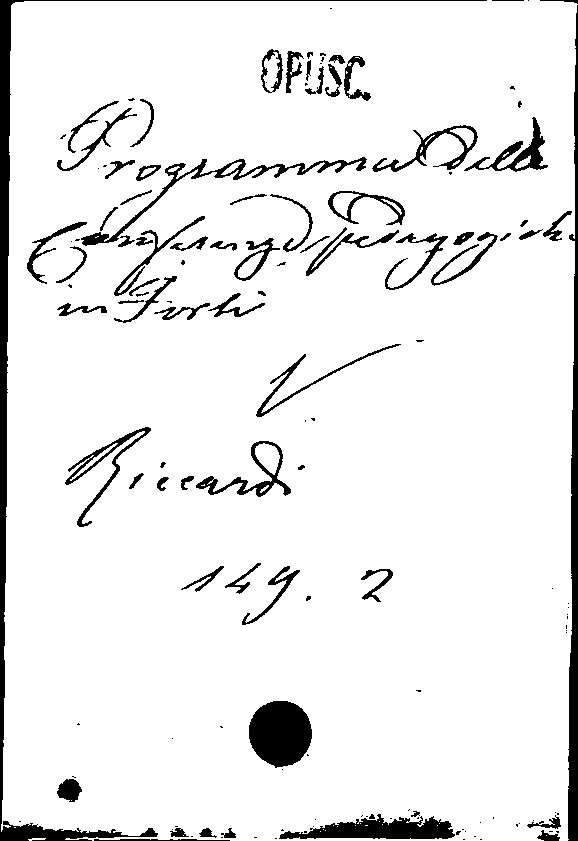 OPUSC.
Programma delle
Conferenze pedagogiche
in Forlì
V
Riccardi
149. 2